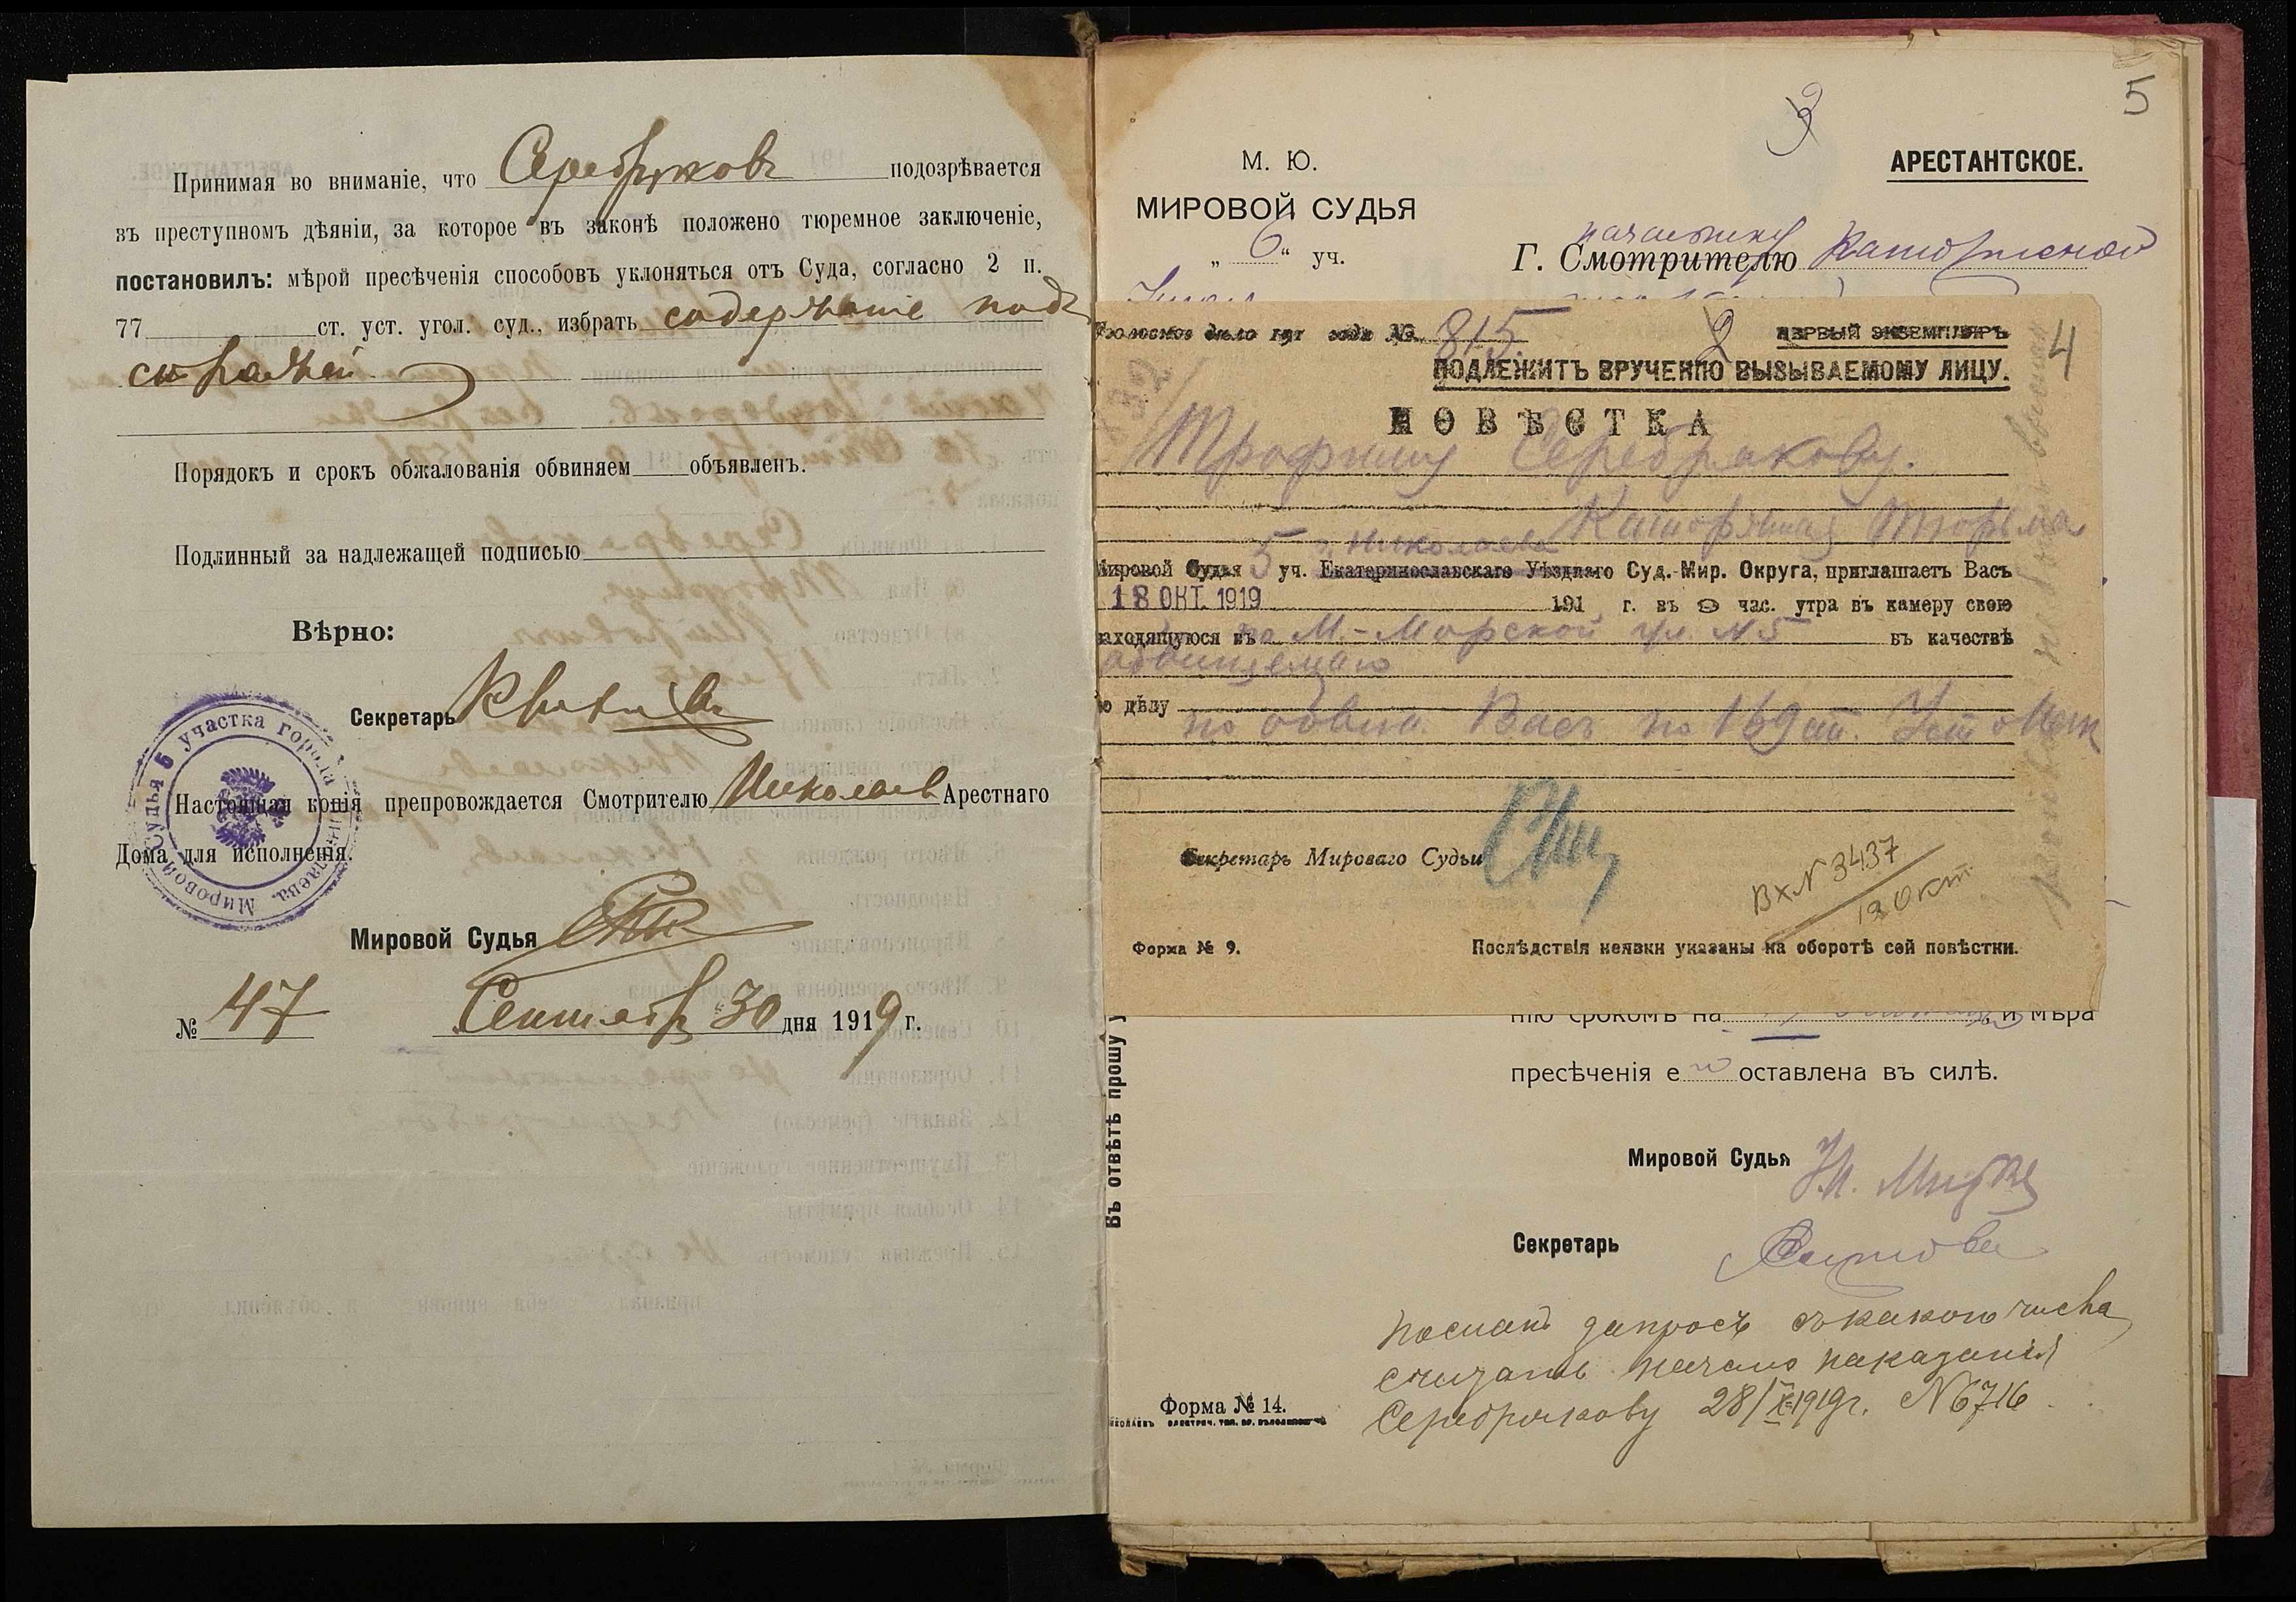 Принимая во вниманіе, что Серебряковъ подозрѣвается
въ преступномъ дѣяніи, за которое въ законѣ положено тюремное заключеніе,
постановилъ: мѣрой пресѣченія способовъ уклоняться отъ Суда, согласно 2 п.
77 ст. уст. угол. суд., избрать содержаніе подъ
стражей
Порядокъ и срокъ обжалованія обвиняем объявленъ.
Подлинный за надлежащей подписью
Вѣрно:
Секретарь
Мировой Судья 5 участка города Николаева
Настоящая копія препровождается Смотрителю Николаев Арестнаго
Дома для исполненія.
Мировой Судья
№ 47 Сентябр 30 дня 1919 г.
5
3
М. Ю.
АРЕСТАНТСКОЕ.
МИРОВОЙ СУДЬЯ
„ 6 “ уч.
начальнику
Г. Смотрителю Каторжной
Уголовное дѣло 191 года № 815
2
ПЕРВЫЙ ЭКЗЕМПЛЯРЪ
4
ПОДЛЕЖИТЪ ВРУЧЕНІЮ ВЫЗЫВАЕМОМУ ЛИЦУ.
ПОВѢСТКА
Трофиму Серебрякову.
Каторжная Тюрьма
г. Николаева
Мировой Судья 5 уч. Екатеринославскаго Уѣзднаго Суд.-Мир. Округа, приглашаетъ Васъ
18 ОКТ. 1919 191 г. въ 9 час. утра въ камеру свою
находящуюся въ по М.-Морской ул. № 5 въ качествѣ
обвиняемаго
по дѣлу
по обвин. Васъ по 169 ст. Уст о Нак
Секретарь Мироваго Судьи
Вх № 3437
18 Окт
Форма № 9.
Послѣдствія неявки указаны на оборотѣ сей повѣстки.
нію срокомъ на и мѣра
пресѣченія е оставлена въ силѣ.
Въ отвѣтѣ прошу
Мировой Судья
Секретарь
Посланъ запросъ съ какого числа
считать начало наказанія
Серебрякову 28/X-1919 г. № 6716
Форма № 14.